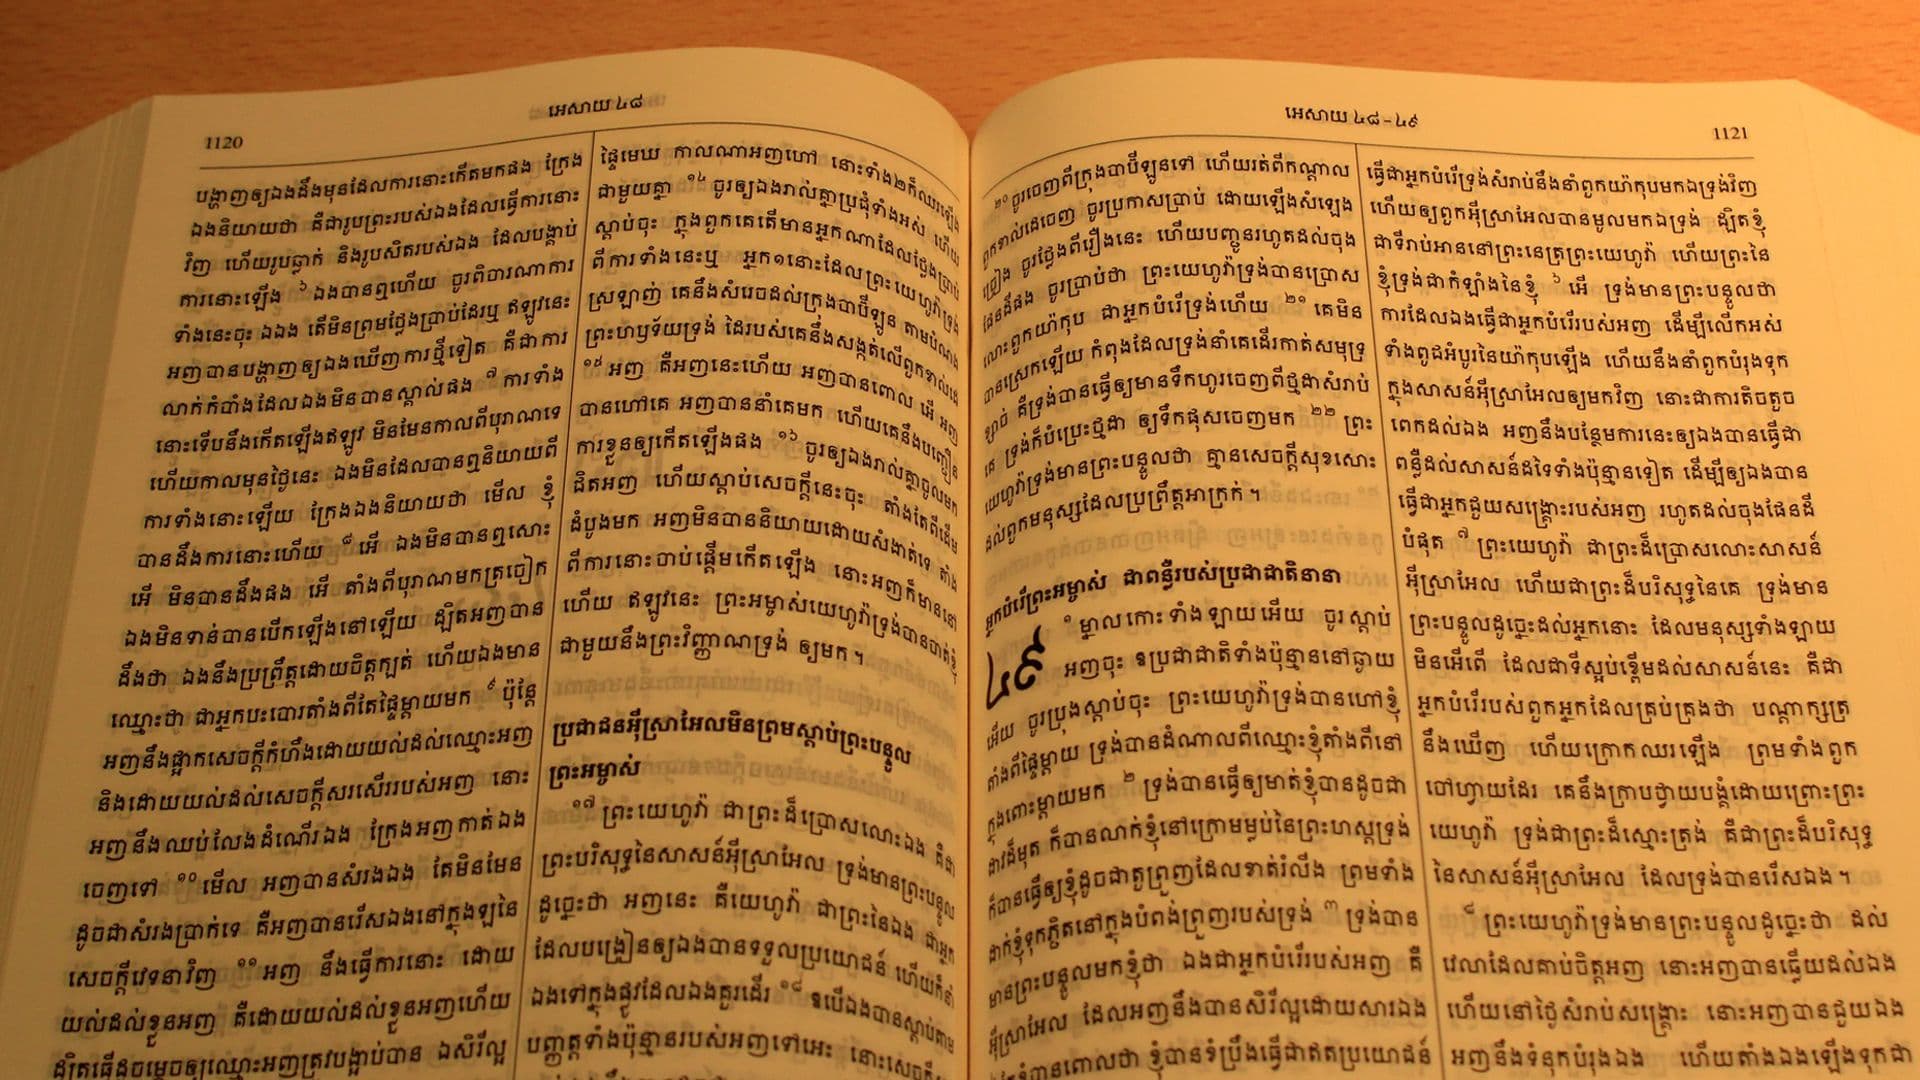 1120
អេសាយ ៤៨
បង្ហាញឲ្យឯងដឹងមុនដែលការនោះកើតមកផង ក្រែង
ឯងនិយាយថា គឺជារូបព្រះរបស់ឯងដែលធ្វើការនោះ
វិញ ហើយរូបឆ្លាក់ និងរូបសិតរបស់ឯង ដែលបង្គាប់
ការនោះឡើង ៦ ឯងបានឮហើយ ចូរពិចារណាការ
ទាំងនេះចុះ ឯឯង តើមិនព្រមថ្លែងប្រាប់ដែរឬ ឥឡូវនេះ
អញបានបង្ហាញឲ្យឯងឃើញការថ្មីទៀត គឺជាការ
លាក់កំបាំងដែលឯងមិនបានស្គាល់ផង ៧ ការទាំង
នោះទើបនឹងកើតឡើងឥឡូវ មិនមែនកាលពីបុរាណទេ
ហើយកាលមុនថ្ងៃនេះ ឯងមិនដែលបានឮនិយាយពី
ការទាំងនោះឡើយ ក្រែងឯងនិយាយថា មើល ខ្ញុំ
បានដឹងការនោះហើយ ៨ អើ ឯងមិនបានឮសោះ
អើ មិនបានដឹងផង អើ តាំងពីបុរាណមកត្រចៀក
ឯងមិនទាន់បានបើកឡើងនៅឡើយ ដ្បិតអញបាន
ដឹងថា ឯងនឹងប្រព្រឹត្តដោយចិត្តក្បត់ ហើយឯងមាន
ឈ្មោះថា ជាអ្នកបះបោរតាំងពីតែផ្ទៃម្តាយមក ៩ ប៉ុន្តែ
អញនឹងផ្អាកសេចក្តីកំហឹងដោយយល់ដល់ឈ្មោះអញ
និងដោយយល់ដល់សេចក្តីសរសើររបស់អញ នោះ
អញនឹងឈប់លែងដំណើរឯង ក្រែងអញកាត់ឯង
ចេញទៅ ១០ មើល អញបានសំរងឯង តែមិនមែន
ដូចជាសំរងប្រាក់ទេ គឺអញបានរើសឯងនៅក្នុងឡនៃ
សេចក្តីវេទនាវិញ ១១ អញ នឹងធ្វើការនោះ ដោយ
យល់ដល់ខ្លួនអញ គឺដោយយល់ដល់ខ្លួនអញហើយ
ដ្បិតធ្វើដូចម្តេចឲ្យឈ្មោះអញត្រូវបង្អាប់បាន ឯសិរីល្អ
ផ្ទៃមេឃ កាលណាអញហៅ នោះទាំង២ក៏ឈរឡើង
ជាមួយគ្នា ១៤ ចូរឲ្យឯងរាល់គ្នាប្រជុំទាំងអស់ ហើយ
ស្តាប់ចុះ ក្នុងពួកគេតើមានអ្នកណាដែលថ្លែងប្រាប់
ពីការទាំងនេះឬ អ្នក១នោះដែលព្រះយេហូវ៉ាទ្រង់
ស្រឡាញ់ គេនឹងសំរេចដល់ក្រុងបាប៊ីឡូន តាមបំណង
ព្រះហឫទ័យទ្រង់ ដៃរបស់គេនឹងសង្កត់លើពួកខាល់ដេ
១៥ អញ គឺអញនេះហើយ អញបានពោល អើ អញ
បានហៅគេ អញបាននាំគេមក ហើយគេនឹងបញ្ជឿន
ការខ្លួនឲ្យកើតឡើងផង ១៦ ចូរឲ្យឯងរាល់គ្នាចូលមក
ជិតអញ ហើយស្តាប់សេចក្តីនេះចុះ តាំងតែពីដើម
ដំបូងមក អញមិនបាននិយាយដោយសំងាត់ទេ តាំង
ពីការនោះចាប់ផ្តើមកើតឡើង នោះអញក៏មាននៅ
ហើយ ឥឡូវនេះ ព្រះអម្ចាស់យេហូវ៉ាទ្រង់បានចាត់ខ្ញុំ
ជាមួយនឹងព្រះវិញ្ញាណទ្រង់ ឲ្យមក។
ប្រជាជនអ៊ីស្រាអែលមិនព្រមស្តាប់ព្រះបន្ទូល
ព្រះអម្ចាស់
១៧ ព្រះយេហូវ៉ា ជាព្រះដ៏ប្រោសលោះឯង គឺជា
ព្រះបរិសុទ្ធនៃសាសន៍អ៊ីស្រាអែល ទ្រង់មានព្រះបន្ទូល
ដូច្នេះថា អញនេះ គឺយេហូវ៉ា ជាព្រះនៃឯង ជាអ្នក
ដែលបង្រៀនឲ្យឯងបានទទួលប្រយោជន៍ ហើយក៏នាំ
ឯងទៅក្នុងផ្លូវដែលឯងគួរដើរ ១៨ ឱបើឯងបានស្តាប់តាម
បញ្ញត្តទាំងប៉ុន្មានរបស់អញទៅអេះ នោះសេចក្តី
អេសាយ ៤៨-៤៩
1121
២០ ចូរចេញពីក្រុងបាប៊ីឡូនទៅ ហើយរត់ពីកណ្តាល
ពួកខាល់ដេចេញ ចូរប្រកាសប្រាប់ ដោយឡើងសំឡេង
ច្រៀង ចូរថ្លែងពីរឿងនេះ ហើយបញ្ជូនរហូតដល់ចុង
ផែនដីផង ចូរប្រាប់ថា ព្រះយេហូវ៉ាទ្រង់បានប្រោស
លោះពួកយ៉ាកុប ជាអ្នកបំរើទ្រង់ហើយ ២១ គេមិន
បានស្រេកឡើយ កំពុងដែលទ្រង់នាំគេដើរកាត់សមុទ្រ
ខ្សាច់ គឺទ្រង់បានធ្វើឲ្យមានទឹកហូរចេញពីថ្មដាសំរាប់
គេ ទ្រង់ក៏បំប្រេះថ្មដា ឲ្យទឹកផុសចេញមក ២២ ព្រះ
យេហូវ៉ាទ្រង់មានព្រះបន្ទូលថា គ្មានសេចក្តីសុខសោះ
ដល់ពួកមនុស្សដែលប្រព្រឹត្តអាក្រក់។
អ្នកបំរើព្រះអម្ចាស់ ជាពន្លឺរបស់ប្រជាជាតិនានា
៤៩ ១ ម្នាលកោះទាំងឡាយអើយ ចូរស្តាប់
អញចុះ ឱប្រជាជាតិទាំងប៉ុន្មាននៅឆ្ងាយ
អើយ ចូរប្រុងស្តាប់ចុះ ព្រះយេហូវ៉ាទ្រង់បានហៅខ្ញុំ
តាំងពីផ្ទៃម្តាយ ទ្រង់បានដំណាលពីឈ្មោះខ្ញុំតាំងពីនៅ
ក្នុងពោះម្តាយមក ២ ទ្រង់បានធ្វើឲ្យមាត់ខ្ញុំបានដូចជា
ដាវដ៏មុត ក៏បានលាក់ខ្ញុំនៅក្រោមម្លប់នៃព្រះហស្តទ្រង់
ក៏បានធ្វើឲ្យខ្ញុំដូចជាតួព្រួញដែលខាត់រំលីង ព្រមទាំង
ដាក់ខ្ញុំទុកភ្ជិតនៅក្នុងបំពង់ព្រួញរបស់ទ្រង់ ៣ ទ្រង់បាន
មានព្រះបន្ទូលមកខ្ញុំថា ឯងជាអ្នកបំរើរបស់អញ គឺ
អ៊ីស្រាអែល ដែលអញនឹងបានសិរីល្អដោយសារឯង
បានពោលថា ខ្ញុំបានទំប្រឹងធ្វើជាឥតប្រយោជន៍
ធ្វើជាអ្នកបំរើទ្រង់សំរាប់នឹងនាំពួកយ៉ាកុបមកឯទ្រង់វិញ
ហើយឲ្យពួកអ៊ីស្រាអែលបានមូលមកឯទ្រង់ ដ្បិតខ្ញុំ
ជាទីរាប់អាននៅព្រះនេត្រព្រះយេហូវ៉ា ហើយព្រះនៃ
ខ្ញុំទ្រង់ជាកំឡាំងនៃខ្ញុំ ៦ អើ ទ្រង់មានព្រះបន្ទូលថា
ការដែលឯងធ្វើជាអ្នកបំរើរបស់អញ ដើម្បីលើកអស់
ទាំងពូជអំបូរនៃយ៉ាកុបឡើង ហើយនឹងនាំពួកបំរុងទុក
ក្នុងសាសន៍អ៊ីស្រាអែលឲ្យមកវិញ នោះជាការតិចតួច
ពេកដល់ឯង អញនឹងបន្ថែមការនេះឲ្យឯងបានធ្វើជា
ពន្លឺដល់សាសន៍ដទៃទាំងប៉ុន្មានទៀត ដើម្បីឲ្យឯងបាន
ធ្វើជាអ្នកជួយសង្គ្រោះរបស់អញ រហូតដល់ចុងផែនដី
បំផុត ៧ ព្រះយេហូវ៉ា ជាព្រះដ៏ប្រោសលោះសាសន៍
អ៊ីស្រាអែល ហើយជាព្រះដ៏បរិសុទ្ធនៃគេ ទ្រង់មាន
ព្រះបន្ទូលដូច្នេះដល់អ្នកនោះ ដែលមនុស្សទាំងឡាយ
មិនអើពើ ដែលជាទីស្អប់ខ្ពើមដល់សាសន៍នេះ គឺជា
អ្នកបំរើរបស់ពួកអ្នកដែលគ្រប់គ្រងថា បណ្តាក្សត្រ
នឹងឃើញ ហើយក្រោកឈរឡើង ព្រមទាំងពួក
ចៅហ្វាយដែរ គេនឹងក្រាបថ្វាយបង្គំដោយព្រោះព្រះ
យេហូវ៉ា ទ្រង់ជាព្រះដ៏ស្មោះត្រង់ គឺជាព្រះដ៏បរិសុទ្ធ
នៃសាសន៍អ៊ីស្រាអែល ដែលទ្រង់បានរើសឯង។
៨ ព្រះយេហូវ៉ាទ្រង់មានព្រះបន្ទូលដូច្នេះថា ដល់
វេលាដែលគាប់ចិត្តអញ នោះអញបានឆ្លើយដល់ឯង
ហើយនៅថ្ងៃសំរាប់សង្គ្រោះ នោះអញបានជួយឯង
អញនឹងទំនុកបំរុងឯង ហើយតាំងឯងឡើងទុកជា